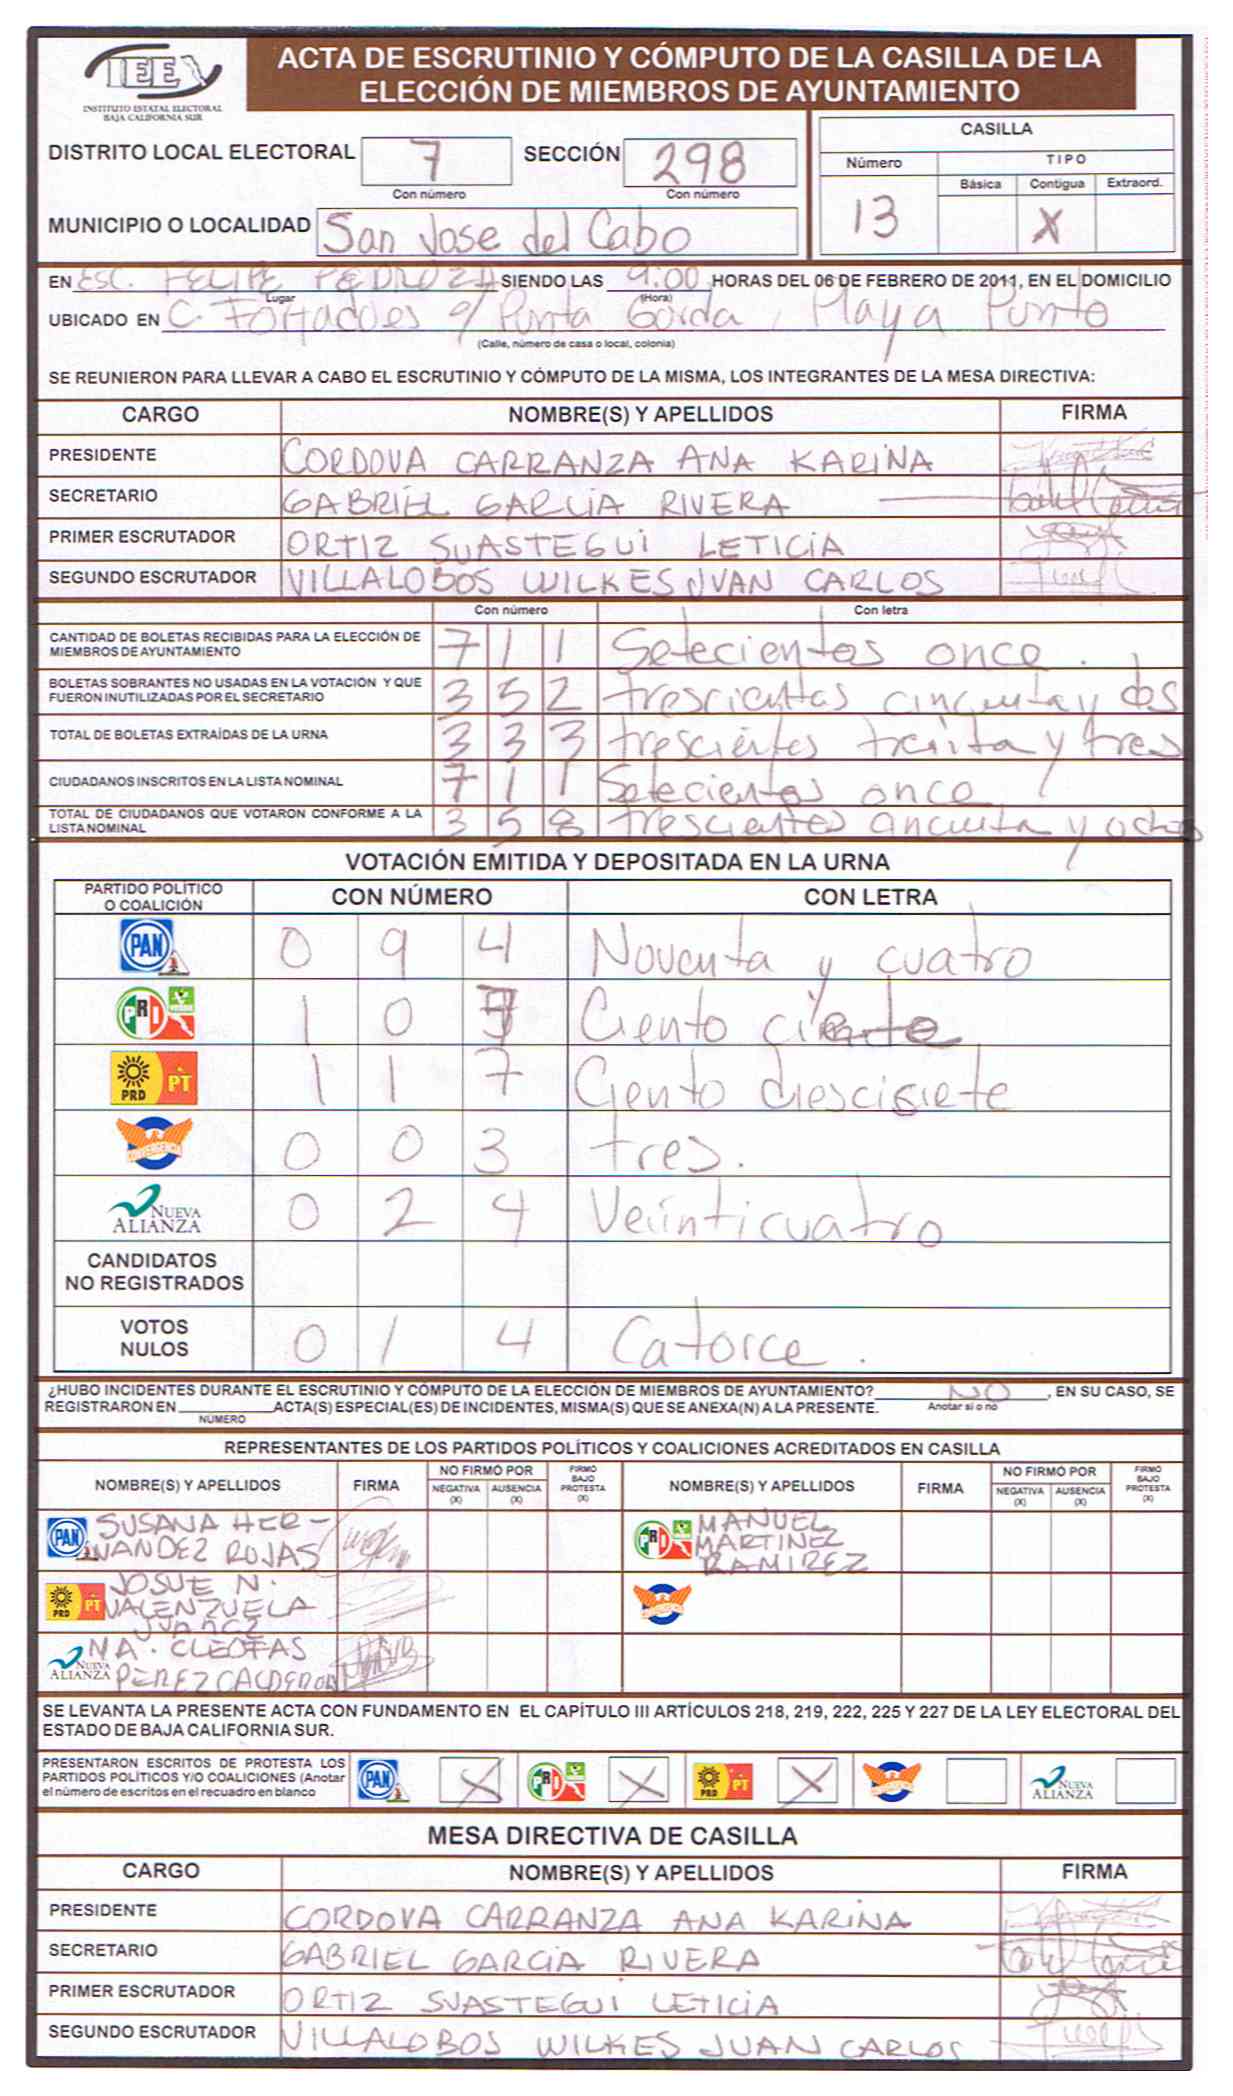 IEE
INSTITUTO ESTATAL ELECTORAL
BAJA CALIFORNIA SUR
ACTA DE ESCRUTINIO Y CÓMPUTO DE LA CASILLA DE LA
ELECCIÓN DE MIEMBROS DE AYUNTAMIENTO
DISTRITO LOCAL ELECTORAL 7 SECCIÓN 298
Con número Con número
MUNICIPIO O LOCALIDAD San Jose del Cabo
CASILLA
Número TIPO
Básica Contigua Extraord.
13 X
EN ESC. FELIPE PEDROZA SIENDO LAS 9:00 HORAS DEL 06 DE FEBRERO DE 2011, EN EL DOMICILIO
Lugar (Hora)
UBICADO EN C. Punta Gorda, Playa Punto
(Calle, número de casa o local, colonia)
SE REUNIERON PARA LLEVAR A CABO EL ESCRUTINIO Y CÓMPUTO DE LA MISMA, LOS INTEGRANTES DE LA MESA DIRECTIVA:
CARGO NOMBRE(S) Y APELLIDOS FIRMA
PRESIDENTE CORDOVA CARRANZA ANA KARINA
SECRETARIO GABRIEL GARCIA RIVERA
PRIMER ESCRUTADOR ORTIZ SUASTEGUI LETICIA
SEGUNDO ESCRUTADOR VILLALOBOS WILKES JUAN CARLOS
Con número Con letra
CANTIDAD DE BOLETAS RECIBIDAS PARA LA ELECCIÓN DE
MIEMBROS DE AYUNTAMIENTO 7 1 1 Setecientos once.
BOLETAS SOBRANTES NO USADAS EN LA VOTACIÓN Y QUE
FUERON INUTILIZADAS POR EL SECRETARIO 3 5 2 trescientas cincuenta y dos
TOTAL DE BOLETAS EXTRAÍDAS DE LA URNA 3 3 3 trescientes treinta y tres
CIUDADANOS INSCRITOS EN LA LISTA NOMINAL 7 1 1 Setecientos once
TOTAL DE CIUDADANOS QUE VOTARON CONFORME A LA
LISTA NOMINAL 3 5 8 trescientes cincuenta y ocho
VOTACIÓN EMITIDA Y DEPOSITADA EN LA URNA
PARTIDO POLÍTICO
O COALICIÓN CON NÚMERO CON LETRA
PAN 0 9 4 Noventa y cuatro
PRI 1 0 7 Ciento
PRD PT 1 1 7 Ciento diescisiete
CONVERGENCIA 0 0 3 tres.
NUEVA
ALIANZA 0 2 4 Veinticuatro
CANDIDATOS
NO REGISTRADOS
VOTOS
NULOS 0 1 4 Catorce.
¿HUBO INCIDENTES DURANTE EL ESCRUTINIO Y CÓMPUTO DE LA ELECCIÓN DE MIEMBROS DE AYUNTAMIENTO? NO, EN SU CASO, SE
REGISTRARON EN ACTA(S) ESPECIAL(ES) DE INCIDENTES, MISMA(S) QUE SE ANEXA(N) A LA PRESENTE. Anotar si o no
NÚMERO
REPRESENTANTES DE LOS PARTIDOS POLÍTICOS Y COALICIONES ACREDITADOS EN CASILLA
NOMBRE(S) Y APELLIDOS FIRMA NO FIRMÓ POR NEGATIVA (X) AUSENCIA (X) FIRMÓ BAJO PROTESTA (X) NOMBRE(S) Y APELLIDOS FIRMA NO FIRMÓ POR NEGATIVA (X) AUSENCIA (X) FIRMÓ BAJO PROTESTA (X)
PAN SUSANA HER-
NANDEZ ROJAS
PRI MANUEL
MARTINEZ
RAMIREZ
PRD PT JOSUE N.
VALENZUELA
CONVERGENCIA
NUEVA
ALIANZA MA. CLEOFAS
PEREZ CALDERON
SE LEVANTA LA PRESENTE ACTA CON FUNDAMENTO EN EL CAPÍTULO III ARTÍCULOS 218, 219, 222, 225 Y 227 DE LA LEY ELECTORAL DEL
ESTADO DE BAJA CALIFORNIA SUR.
PRESENTARON ESCRITOS DE PROTESTA LOS
PARTIDOS POLÍTICOS Y/O COALICIONES (Anotar
el número de escritos en el recuadro en blanco
PAN X PRI X PRD PT X CONVERGENCIA NUEVA ALIANZA
MESA DIRECTIVA DE CASILLA
CARGO NOMBRE(S) Y APELLIDOS FIRMA
PRESIDENTE CORDOVA CARRANZA ANA KARINA
SECRETARIO GABRIEL GARCIA RIVERA
PRIMER ESCRUTADOR ORTIZ SUASTEGUI LETICIA
SEGUNDO ESCRUTADOR VILLALOBOS WILKES JUAN CARLOS